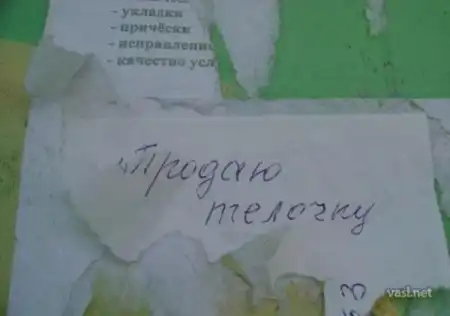 - укладки
- причёски
- исправление
- качество усл
Продаю
телочку
vasi.net